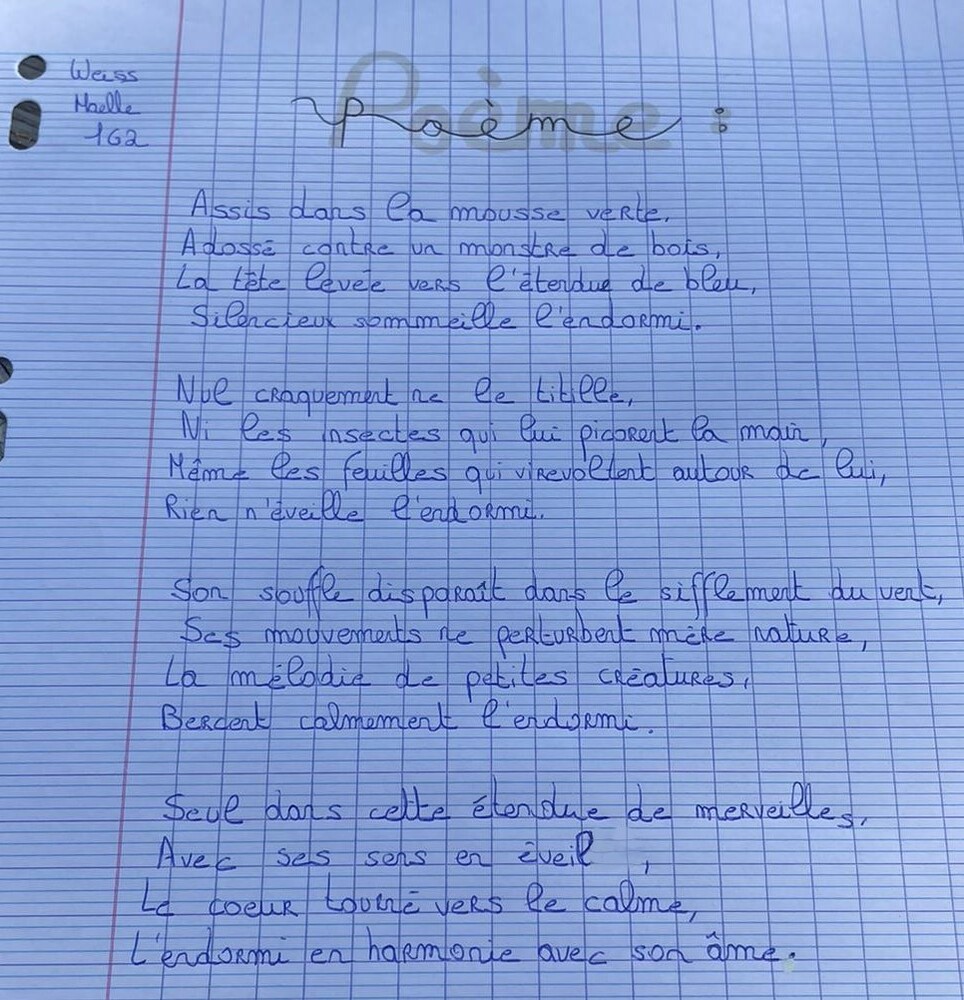 Weiss
Maelle
1G2
Poème :
Assis dans la mousse verte,
Adossé contre un monstre de bois,
La tête levée vers l'étendue de bleu,
Silencieux sommeille l'endormi.
Nul craquement ne le titille,
Ni les insectes qui lui picorent la main,
Même les feuilles qui virevoltent autour de lui,
Rien n'éveille l'endormi.
Son souffle disparaît dans le sifflement du vent,
Ses mouvements ne perturbent mère nature,
La mélodie de petites créatures,
Bercent calmement l'endormi.
Seul dans cette étendue de merveilles,
Avec ses sens en éveil,
Le coeur tourné vers le calme,
L'endormi en harmonie avec son âme.